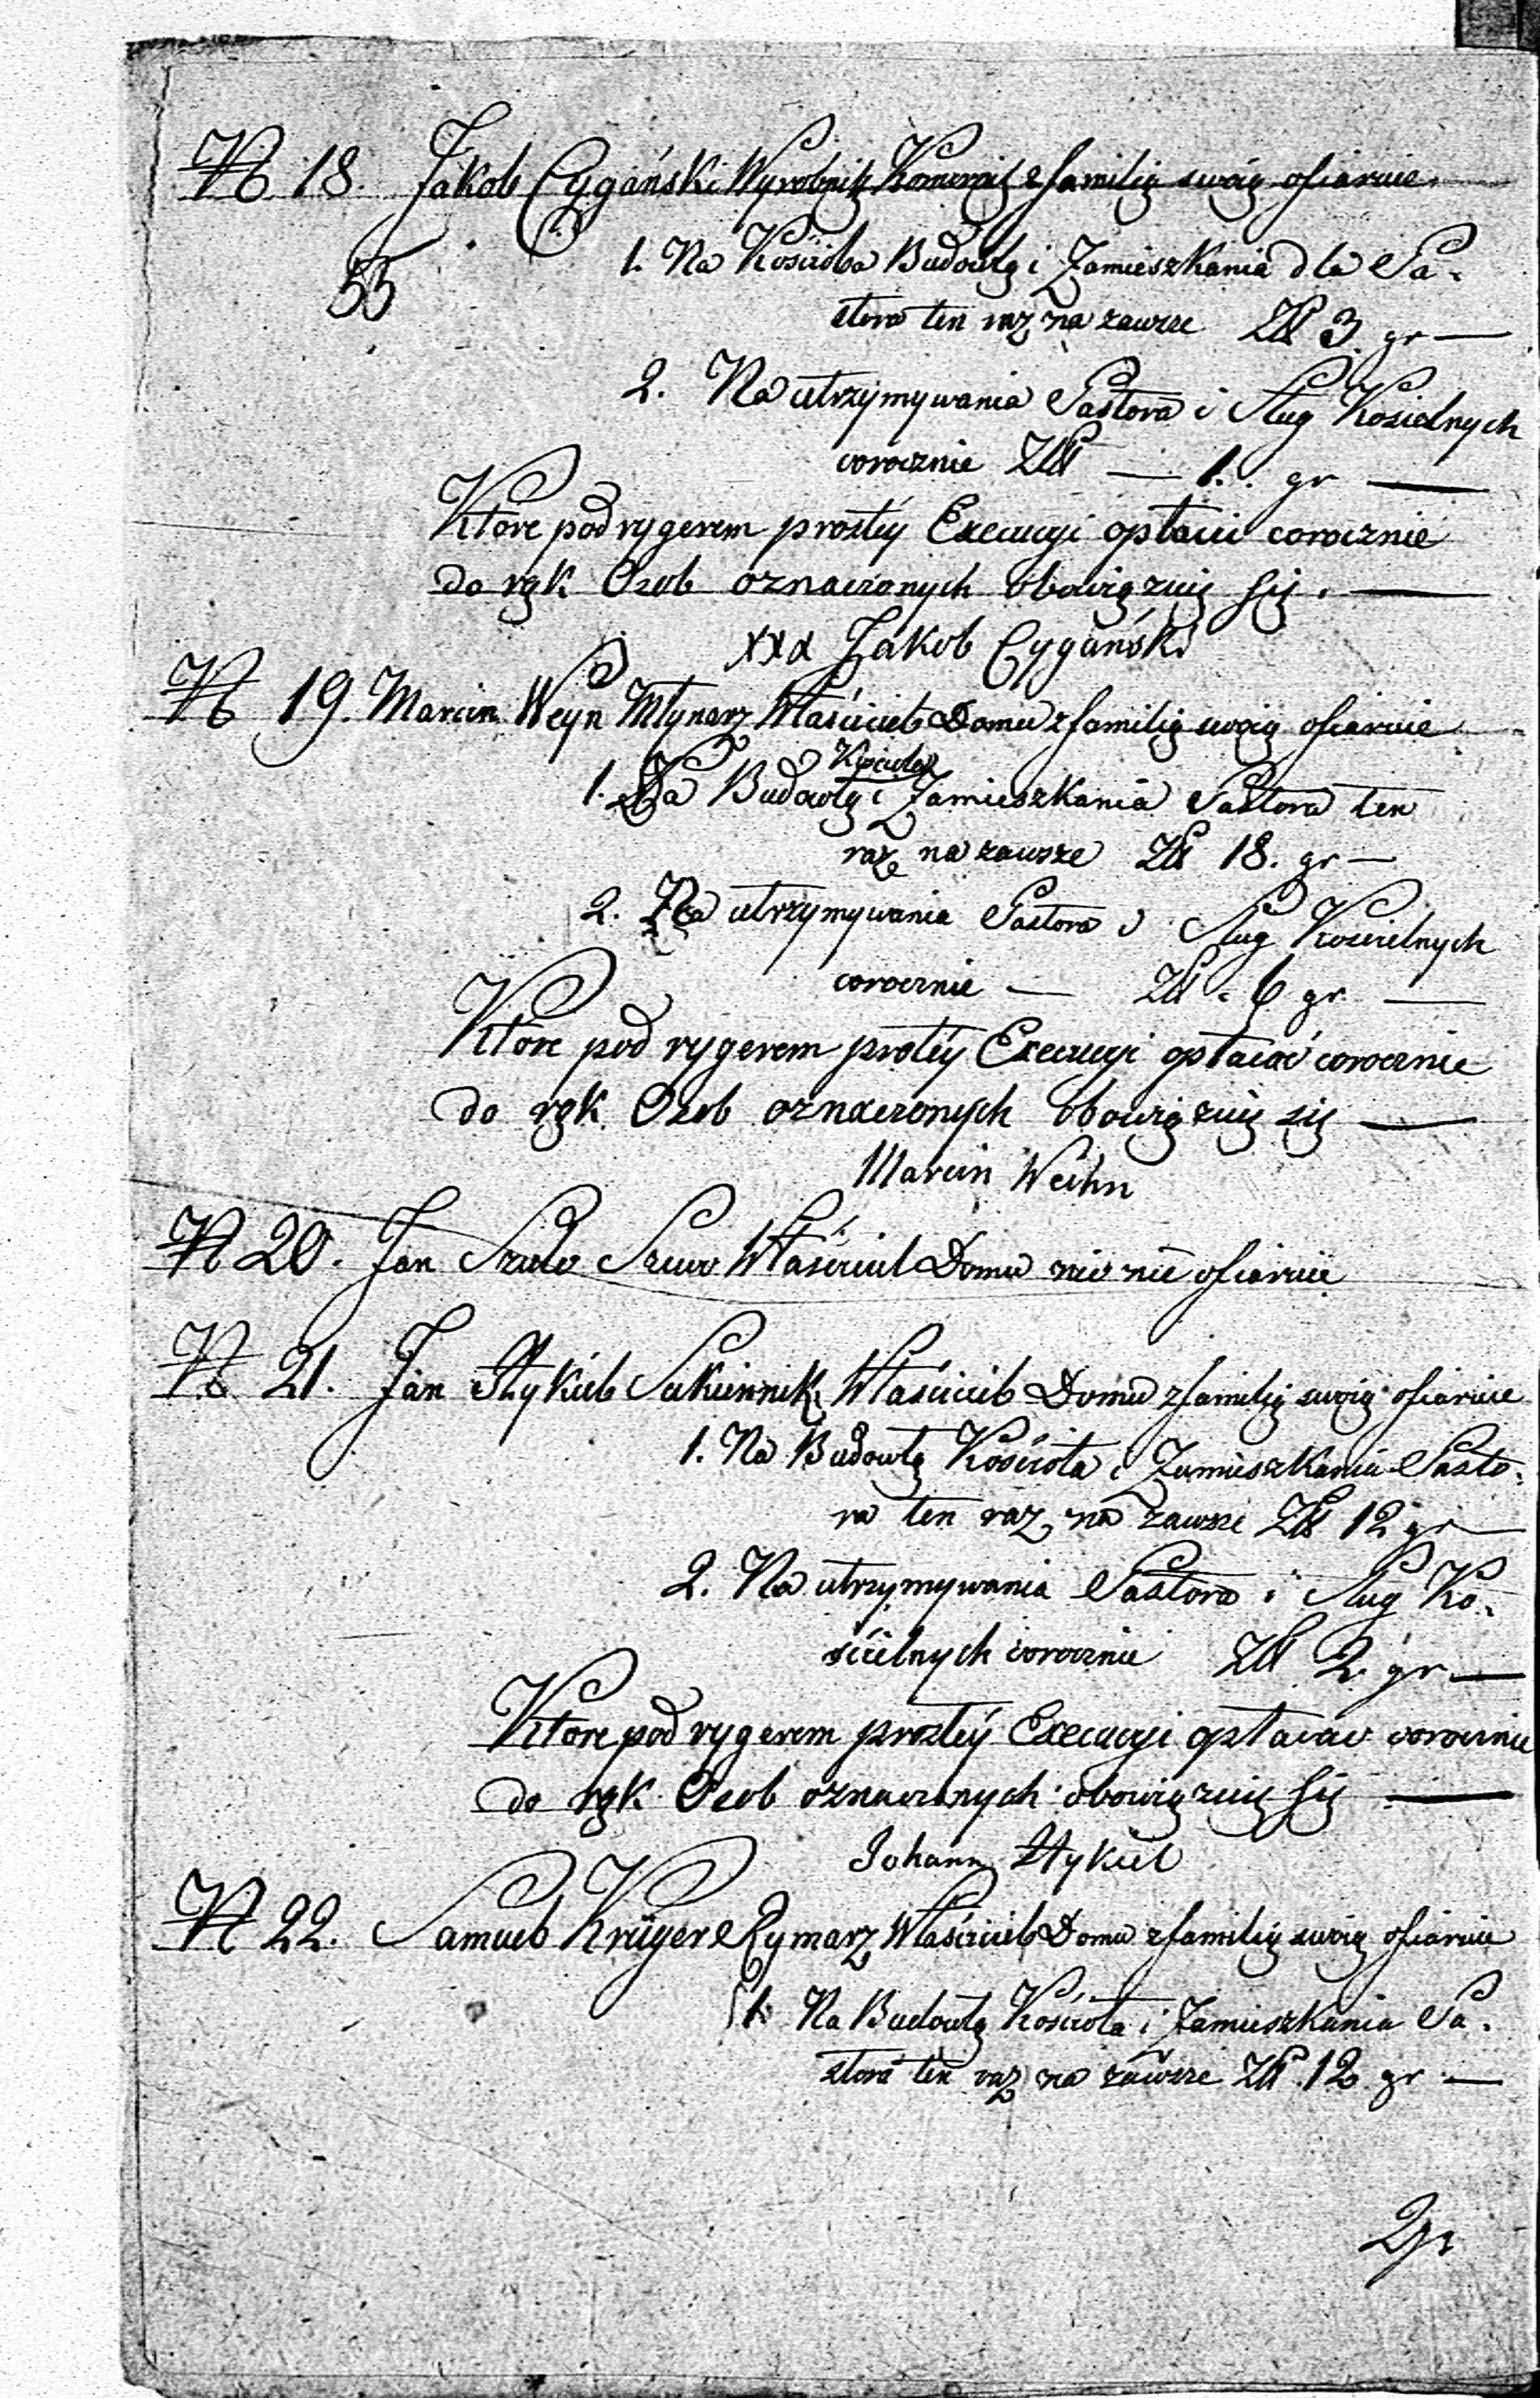 N 18. Jakob Cygański Wyrobnik Komornik z familią swoią ofiaruie
55
1. Na Kościoła Budowlą i Zamieszkania dla Pa-
stora ten raz na zawsze Złł 3 gr —
2. Na utrzymywania Pastora i Sług Kościelnych
corocznie Złł — 1. gr —
Ktore pod rygerem prostéy Execucyi opłacić corocznie
do rąk Osob oznaczonych obowięzuię się. —
xxx Jakob Cygański
N 19. Marcin Weyn Młynarz Właściciel Domu z familią swoią ofiaruie
Kościoła
1. Na Budowlą i Zamieszkania Pastora ten
raz na zawsze Złł 18. gr —
2. Na utrzymywania Pastora i Sług Kościelnych
corocznie — Złł 6 gr —
Ktore pod rygerem prostéy Execucyi opłacać corocznie
do rąk Osob oznaczonych obowięzuię się —
Marcin Weihn
N 20. Jan Szulc Szewc Właściciel Domu nic nie ofiaruie
N 21. Jan Sztykiel Sukiennik Właściciel Domu z familią swoią ofiaruie
1. Na Budowlą Kościoła i Zamieszkania Pasto-
ra ten raz na zawsze Złł 12 gr —
2. Na utrzymywania Pastora i Sług Ko-
ścielnych corocznie Złł 2 gr —
Ktore pod rygerem prostéy Execucyi opłacać corocznie
do rąk Osob oznaczonych obowięzuię się —
Johann
N 22. Samuel Krüger Rymarz Właściciel Domu z familią swoią ofiaruie
1. Na Budowlą Kościoła i Zamieszkania Pa-
stora ten raz na zawsze Złł 12 gr —